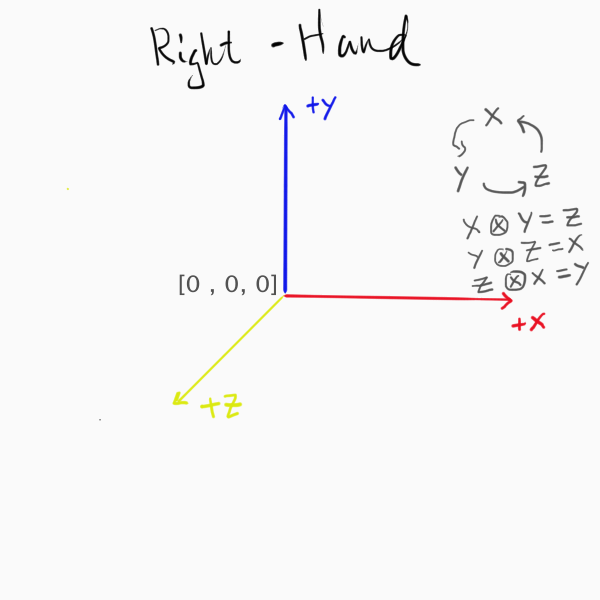 Right - Hand
+Y
X
Y Z
X ⊗ Y = Z
Y ⊗ Z = X
Z ⊗ X = Y
[0 , 0, 0]
+X
+Z